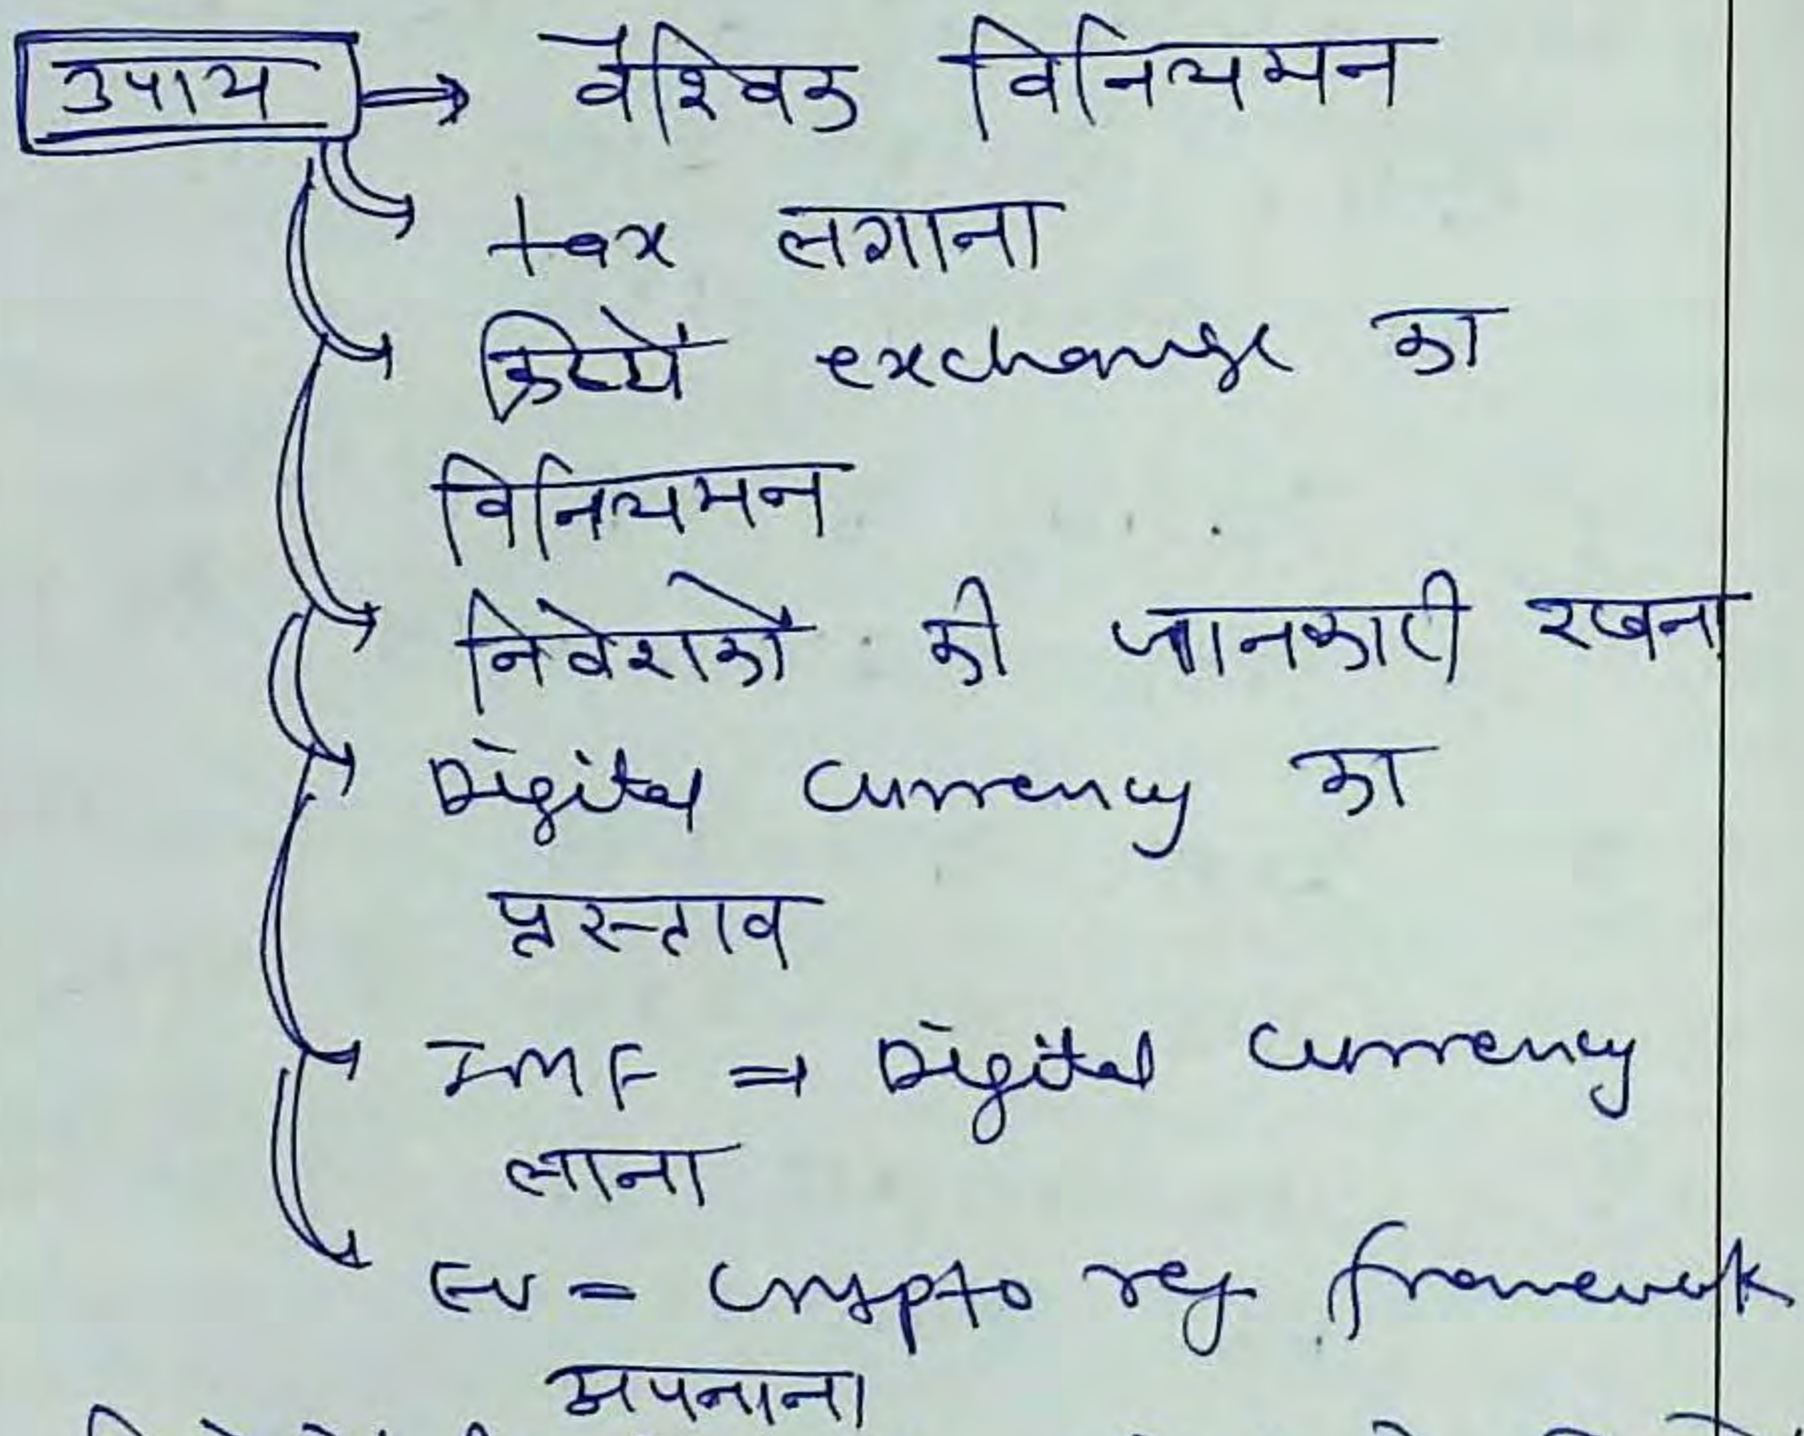 उपाय ⇒ वैश्विक विनियमन
tax लगाना
क्रिप्टो exchange का
विनियमन
निवेशकों की जानकारी रखना
Digital currency का
प्रस्ताव
IMF ⇒ Digital currency
लाना
EU = crypto reg framework
अपनाना